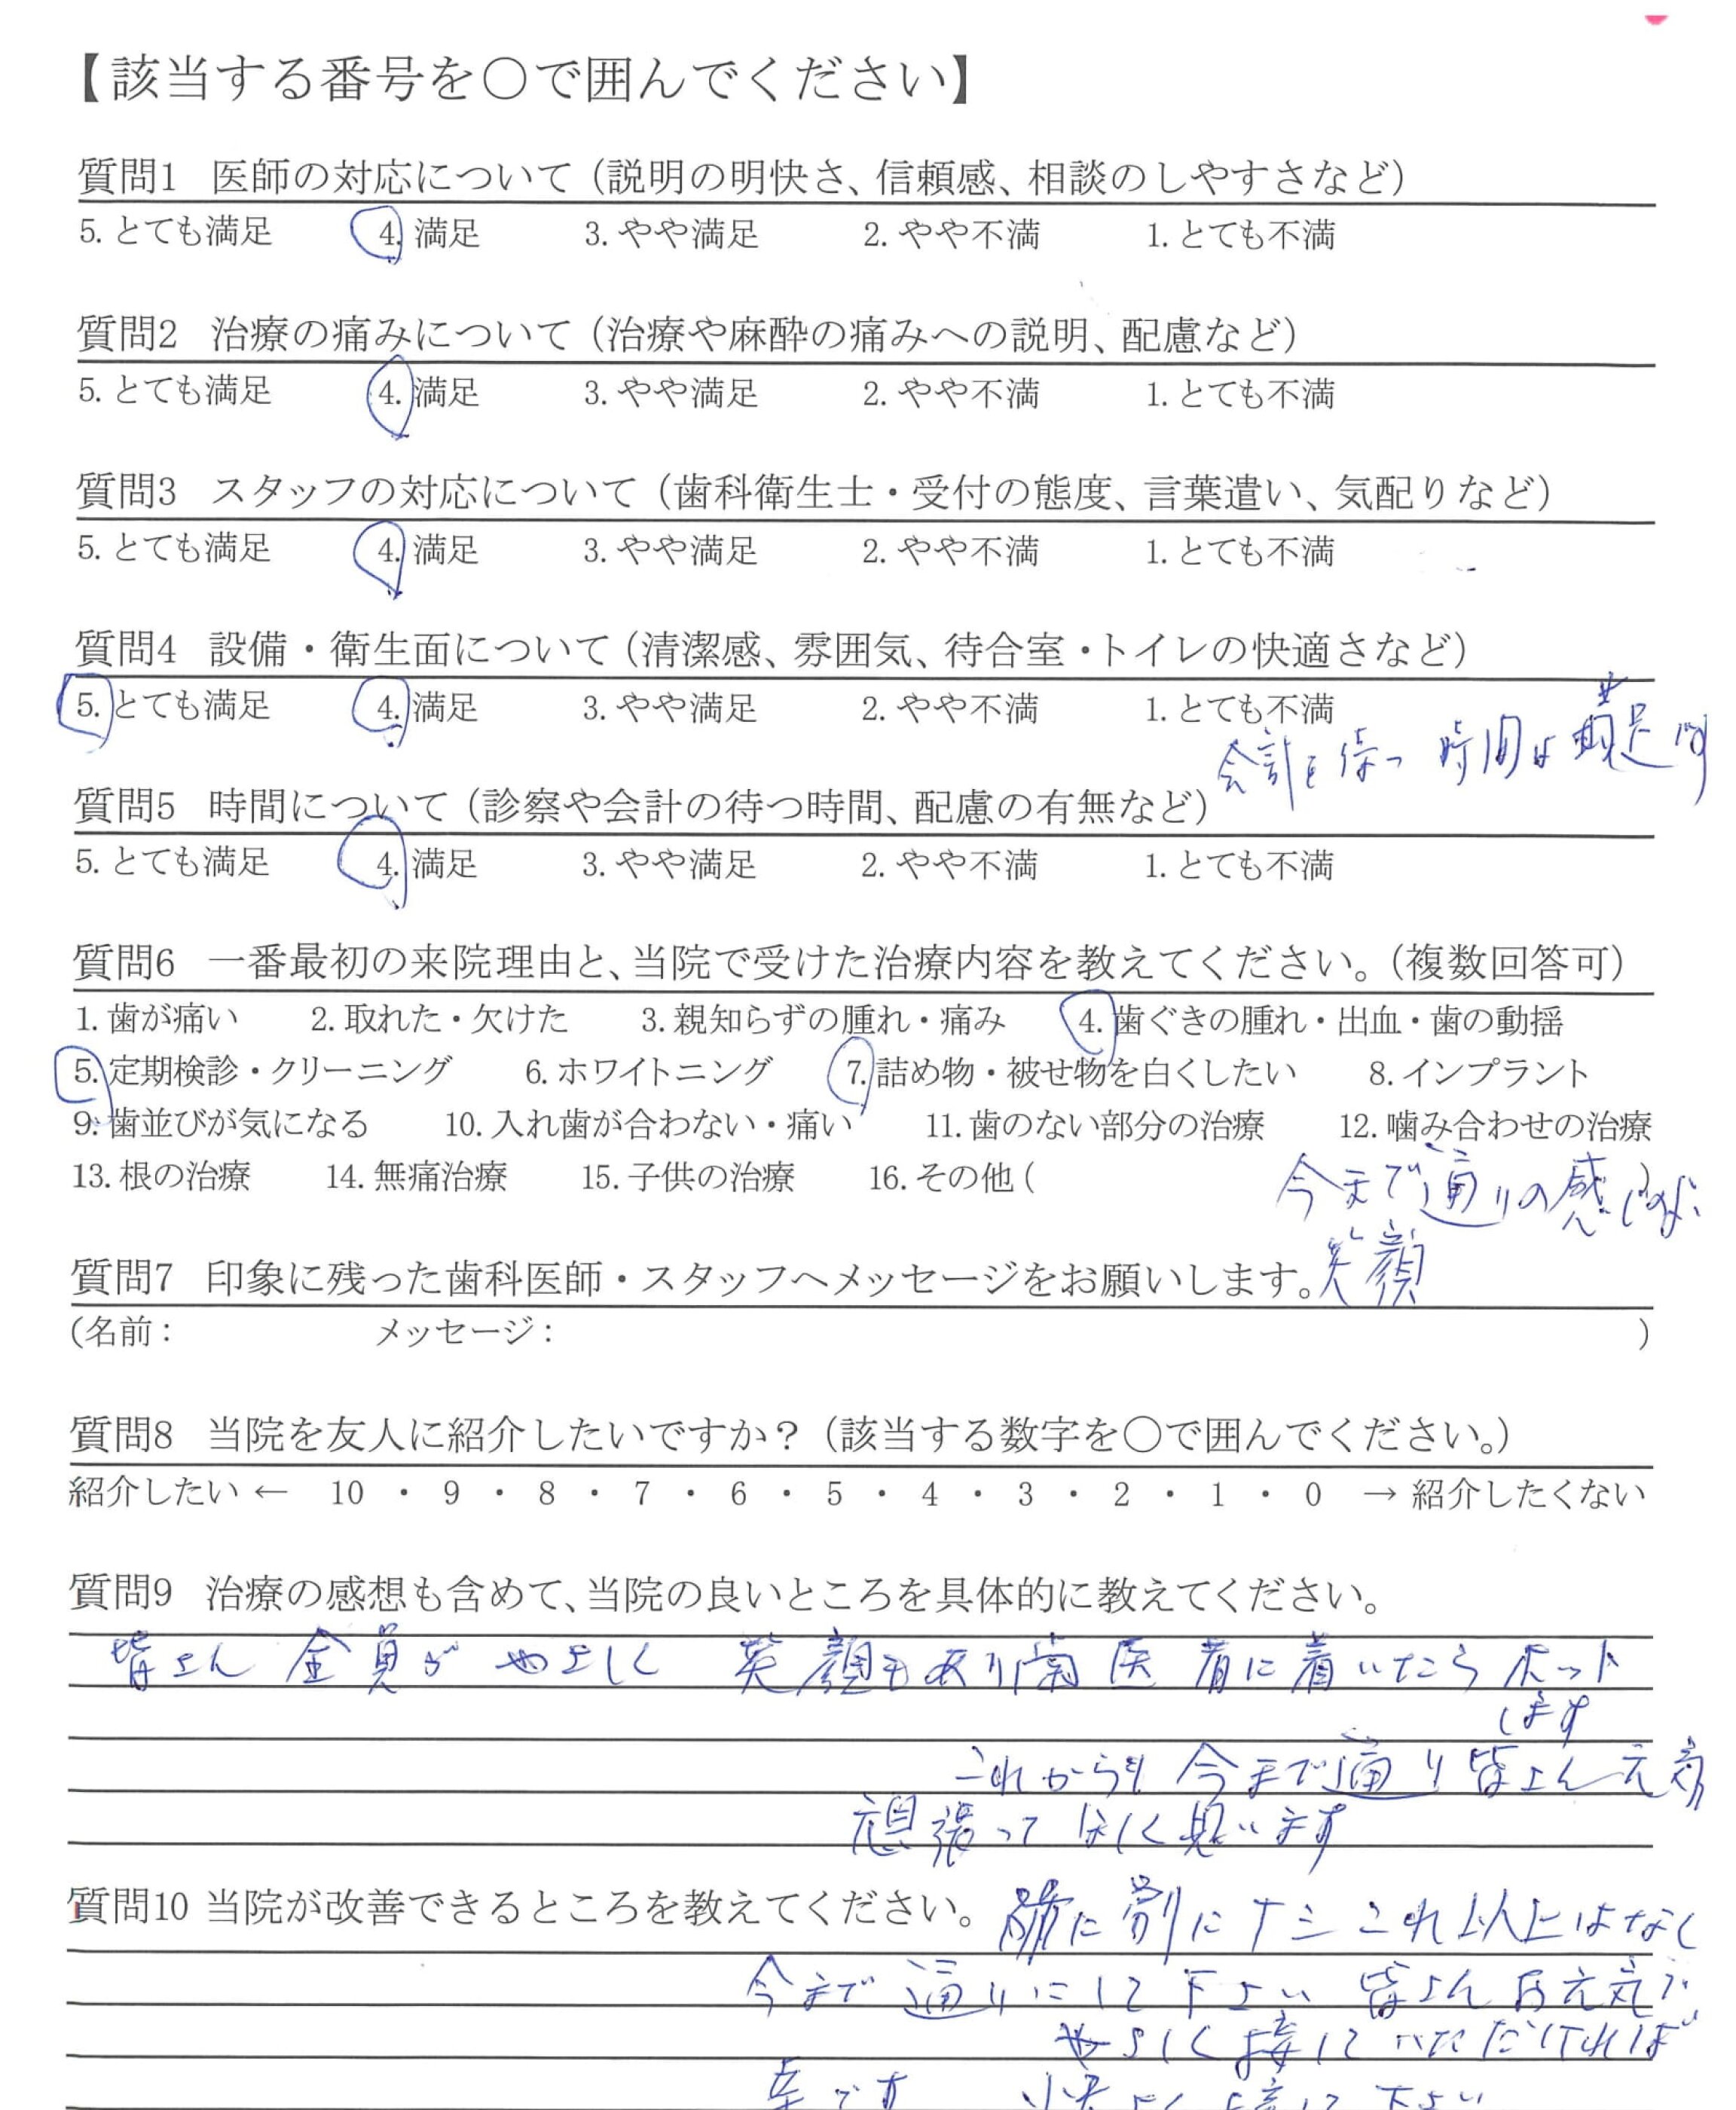 【該当する番号を○で囲んでください】
質問1 医師の対応について（説明の明快さ、信頼感、相談のしやすさなど）
5. とても満足 4. 満足 3. やや満足 2. やや不満 1. とても不満
質問2 治療の痛みについて（治療や麻酔の痛みへの説明、配慮など）
5. とても満足 4. 満足 3. やや満足 2. やや不満 1. とても不満
質問3 スタッフの対応について（歯科衛生士・受付の態度、言葉遣い、気配りなど）
5. とても満足 4. 満足 3. やや満足 2. やや不満 1. とても不満
質問4 設備・衛生面について（清潔感、雰囲気、待合室・トイレの快適さなど）
5. とても満足 4. 満足 3. やや満足 2. やや不満 1. とても不満
会計を待つ 時間は
質問5 時間について（診察や会計の待つ時間、配慮の有無など）
5. とても満足 4. 満足 3. やや満足 2. やや不満 1. とても不満
質問6 一番最初の来院理由と、当院で受けた治療内容を教えてください。（複数回答可）
1. 歯が痛い 2. 取れた・欠けた 3. 親知らずの腫れ・痛み 4. 歯ぐきの腫れ・出血・歯の動揺
5. 定期検診・クリーニング 6. ホワイトニング 7. 詰め物・被せ物を白くしたい 8. インプラント
9. 歯並びが気になる 10. 入れ歯が合わない・痛い 11. 歯のない部分の治療 12. 噛み合わせの治療
13. 根の治療 14. 無痛治療 15. 子供の治療 16. その他 ( )
今まで通りの感じ
笑顔
質問7 印象に残った歯科医師・スタッフへメッセージをお願いします。
(名前： メッセージ： )
質問8 当院を友人に紹介したいですか？（該当する数字を○で囲んでください。）
紹介したい ← 10 ・ 9 ・ 8 ・ 7 ・ 6 ・ 5 ・ 4 ・ 3 ・ 2 ・ 1 ・ 0 → 紹介したくない
質問9 治療の感想も含めて、当院の良いところを具体的に教えてください。
皆さん 全員が やさしく 笑顔もあり歯医者に着いたら ホット
します
これからも 今まで通り 皆さん 元気
頑張って ほしく思います
質問10 当院が改善できるところを教えてください。
これ以上はなく
今まで 通りにして下さい 皆さん お元気で
やさしく接していただければ
幸です 下さい